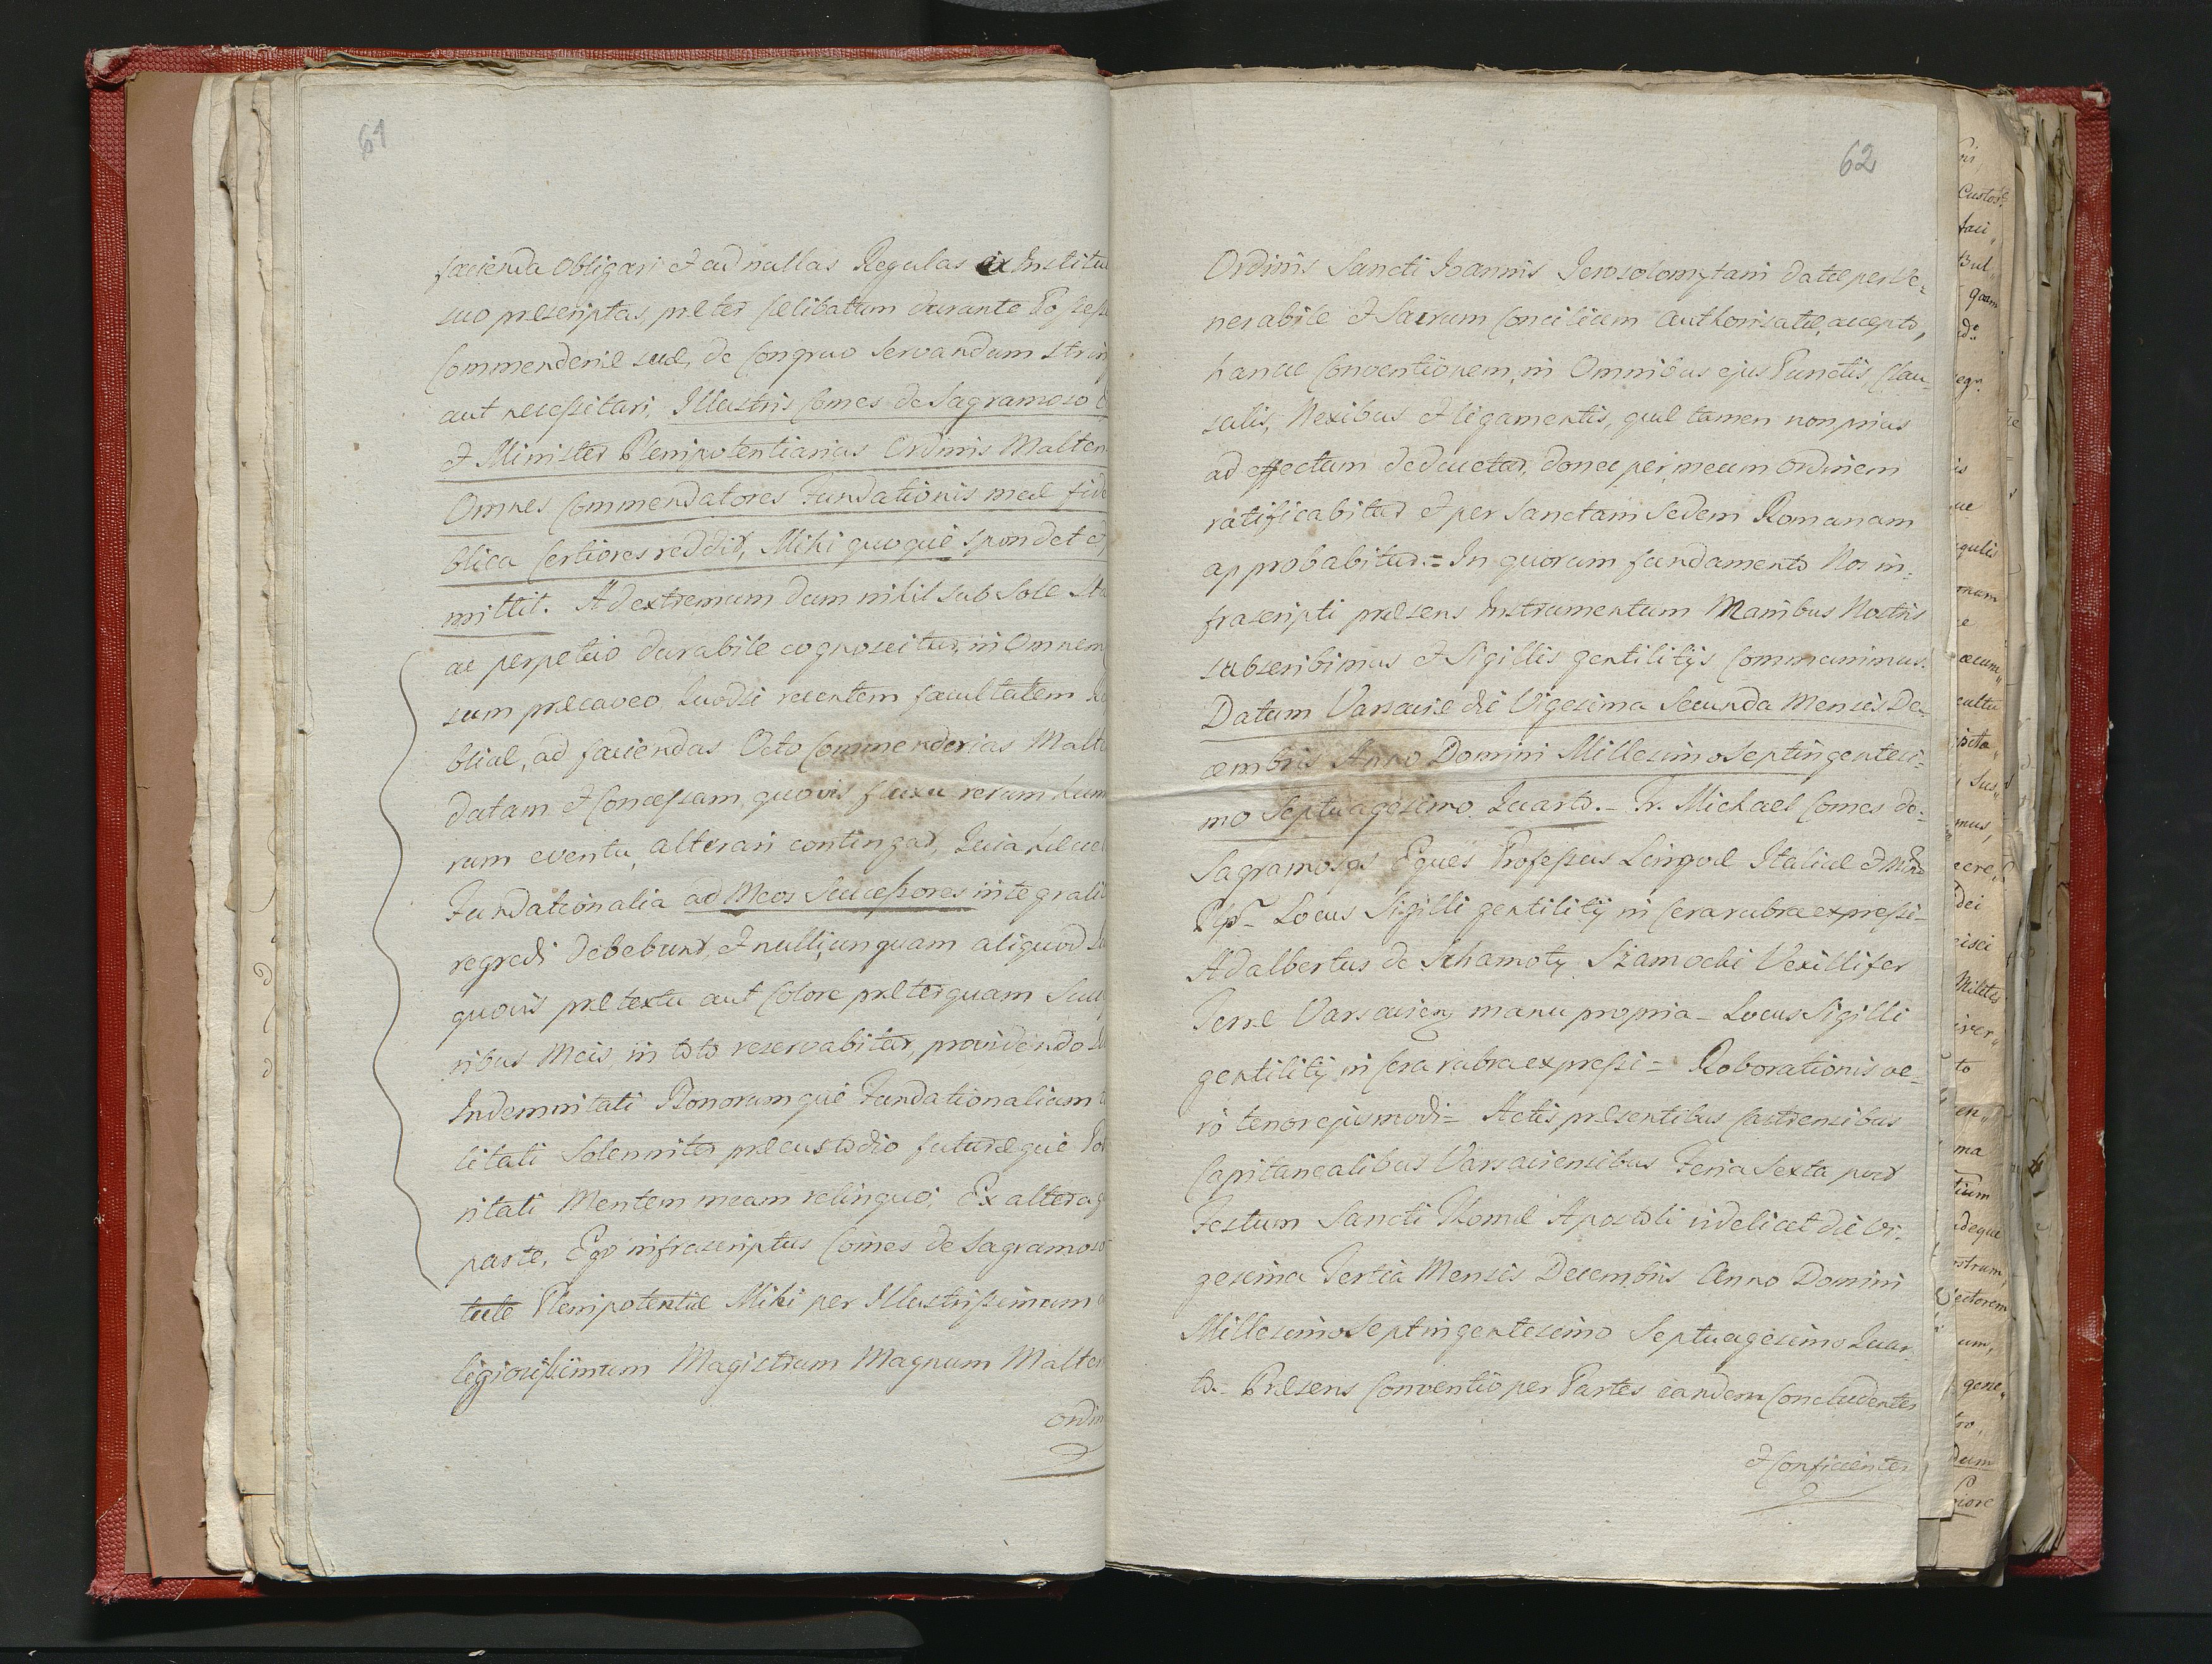 61
facienda obligari et ad nullas Regulas ex Institu
suo præscriptas, præter Celibatum durante Possess
Commenderiæ suæ, de Congruo Servandum strin
aut necessitari, Illustris Comes de Sagramoso
et Minister Plenipotentiarius Ordinis Malten
Omnes Commendatores Fundationis meæ fide
blica Certiores reddit, Mihi quoque spondet et
mittit. Ad extremum dum nihil sub Sole sta
ac perpetuo durabile cognoscitur, in Omnem
sum præcaveo, Quodsi recentem facultatem Re
blicæ, ad faciendas Octo Commenderias Malt
datam et Concessam, quovis fluxu rerum hum
rum eventu, alterari contingat, Quia hæc
Fundationalia ad Meos Successores integrali
regredi debebunt, et nulli unquam aliquod
quovis prætextu aut Colore præterquam Suc
ribus Meis, in toto reservabitur, providendo
Indemnitati Bonorumque Fundationalium
litati Solenniter præcustodio futuræque Po
ritati Mentem meam relinquo; Ex altera
parte. Ego infrascriptus Comes de Sagramoso
tute Plenipotentiæ Mihi per Illustrissimum
ligiosissimum Magistrum Magnum Malten
Ordin
62
Ordinis Sancti Joannis Jerosolomytani datæ per Ve„
nerabile et Sacrum Concilium Authorisatæ, accepto,
hancce Conventionem, in Omnibus ejus Punctis, Clau„
sulis, Nexibus et ligamentis, quæ tamen non prius
ad effectum deducetur, donec per meum Ordinem
ratificabitur et per Sanctam Sedem Romanam
approbabitur.= In quorum fundamento Nos in„
frascripti præsens Instrumentum Manibus Nostris
subscribimus et Sigillis gentilitijs Communimus.
Datum Varsaviæ die Vigesima Secunda Mensis De„
cembris Anno Domini Millesimo Septingentesi„
mo Septuagesimo Quarto.- Fr. Michael Comes de„
Sagramoso Eques Professus Linguæ Italiæ et
Locus Sigilli gentilitij in Cera rubra expressi-
Adalbertus de Szamoty Szamocki Vexillifer
Terræ Varsavien: manu propria- Locus Sigilli
gentilitij in Cera rubra expressi= Roborationis ve„
ro tenor ejusmodi= Actis præsentibus Castrensibus
Capitanealibus Varsaviensibus Feria Sexta post
Festum Sancti Thomæ Apostoli videlicet die Vi„
gesima Tertia Mensis Decembris Anno Domini
Millesimo Septingentesimo Septuagesimo Quar„
to.- Præsens Conventio per Partes eandem Concludentes
et Conficientes